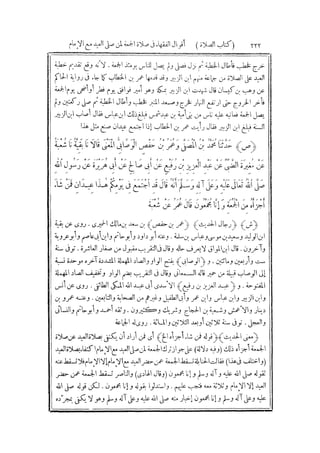 ٢٢٢ (كتاب الصلاة) أقوال الفقهاء فى صلاة الجمعة لمن صلى العيد مع الإمام
خرج خطب فأطال الخطبة ثم نزل فصلى ولم يصل للناس يومئذ الجمعة . لأنه وقع تقديم خطبة
العيد على الصلاة من جماعة منهم ابن الزبير وقد قدمها عمر بن الخطاب كما جاء فى رواية الحاكم
عن وهب بن كيسان قال شهدت ابن الزبير بمكة وهو أمير فوافق يوم فطر أو أضحى يوم الجمعة
فأخر الخروج حتى ارتفع النهار فخرج وصعد المنبر فخطب وأطال الخطبة ثم صلى ركعتين ولم
يصل الجمعة فعاب عليه ناس من بنى أمية بن عبد شمس فبلغ ذلك ابن عباس فقال أصاب ابن الزبير
السنة فبلغ ابن الزبير فقال رأيت عمر بن الخطاب إذا اجتمع عيدان صنع مثل هذا
(ص) حَدَّثَنَا مُحَمَّدُ بْنُ الْمُصَفَّى وَعُمَرُ بْنُ حَفْصٍ الْوَصَّابِىُّ الْمَعْنَى قَالَا نَا بَقِيَّةُ نَا شُعْبَةُ
عَنْ مُغِيرَةَ الضَّبِّىِّ عَنْ عَبْدِ الْعَزِيزِ بْنِ رُفَيْعٍ عَنْ أَبِى صَالِحٍ عَنْ أَبِى هُرَيْرَةَ عَنْ رَسُولِ اللهِ
صَلَّى اللهُ تَعَالَى عَلَيْهِ وَعَلَى آلِهِ وَسَلَّمَ أَنَّهُ قَالَ قَدِ اجْتَمَعَ فِى يَوْمِكُمْ هٰذَا عِيدَانِ فَمَنْ شَاءَ
أَجْزَأَهُ مِنَ الْجُمُعَةِ وَإِنَّا مُجَمِّعُونَ قَالَ عُمَرُ عَنْ شُعْبَةَ
(ش) (رجال الحديث) (عمر بن حفص) بن سعد بن مالك الحميرى . روى عن بقية
ابن الوليد وسعيد بن موسى وعباس بن سلمة . وعنه أبو داود وأبو حاتم وابن أبى عاصم وأبو عروبة
وآخرون . قال ابن المواق لا يعرف حاله وقال فى التقريب مقبول من صغار العاشرة . توفى سنة
ست وأربعين ومائتين . و (الوصابى) بفتح الواو والصاد المهملة المشددة آخره موحدة نسبة
إلى الوصاب قبيلة من حمير قاله السمعانى وقال فى التقريب بضم الواو وتخفيف الصاد المهملة
المفتوحة . و (عبد العزيز بن رفيع) الأسدى أبى عبد الله المكى الطائفى . روى عن أنس
وابن الزبير وابن عباس وابن عمر وأبى الطفيل وغيرهم من الصحابة والتابعين . وعنه عمرو بن
دينار والأعمش وشعبة بن الحجاج وشريك وكثيرون . وثقه أحمد وأبو حاتم والنسائى
والعجلى . توفى سنة ثلاثين أو بعد الثلاثين والمائة . روى له الجماعة
(معنى الحديث) (قوله فمن شاء أجزأه الخ) أى فمن أراد أن يكتفى بصلاة العيد عن صلاة
الجمعة أجزأه ذلك (وفيه دلالة) على جواز ترك الجمعة لمن صلى العيد مع الإمام اكتفاء بصلاة العيد
(واختلف فى هذا) فقالت الحنابلة تسقط الجمعة عمن حضر العيد مع الإمام إلا الإمام فلا تسقط عنه
لقوله صلى الله عليه وآله وسلم وإنا مجمعون (وقال الهادى) والناصر تسقط الجمعة عمن حضر
العيد إلا الإمام وثلاثة معه فتجب عليهم . واستدلوا بقوله وإنا مجمعون . لكن قوله صلى الله
عليه وعلى آله وسلم وإنا مجمعون إخبار منه صلى الله عليه وعلى آله وسلم وهو لا يكفى بمجرده